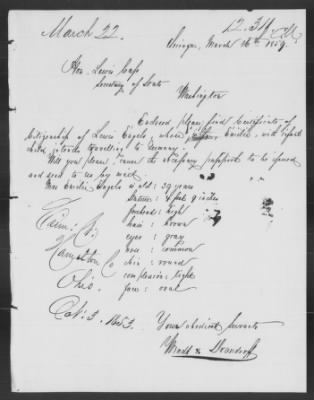 March 22.
12.311
Chicago, March 16th 1859.
Hon. Lewis Cass
Secretary of State
Washington
Enclosed please find Certificate of
Citizenship of Lewis Engels, whose Emilie, with
child intends travelling to Germany.
Will you please cause the necessary passports to be issued
and sent to us by mail.
Mrs Emilie Engels is old: 29 years
Stature: 4 feet 9 inches
forehead: high
hair: brown
eyes: gray
nose: common
chin: round
complexion: light
face: oval
Ham: Co
Hamilton Co
Ohio.
Oct. 3. 1853.
Your obedient Servants